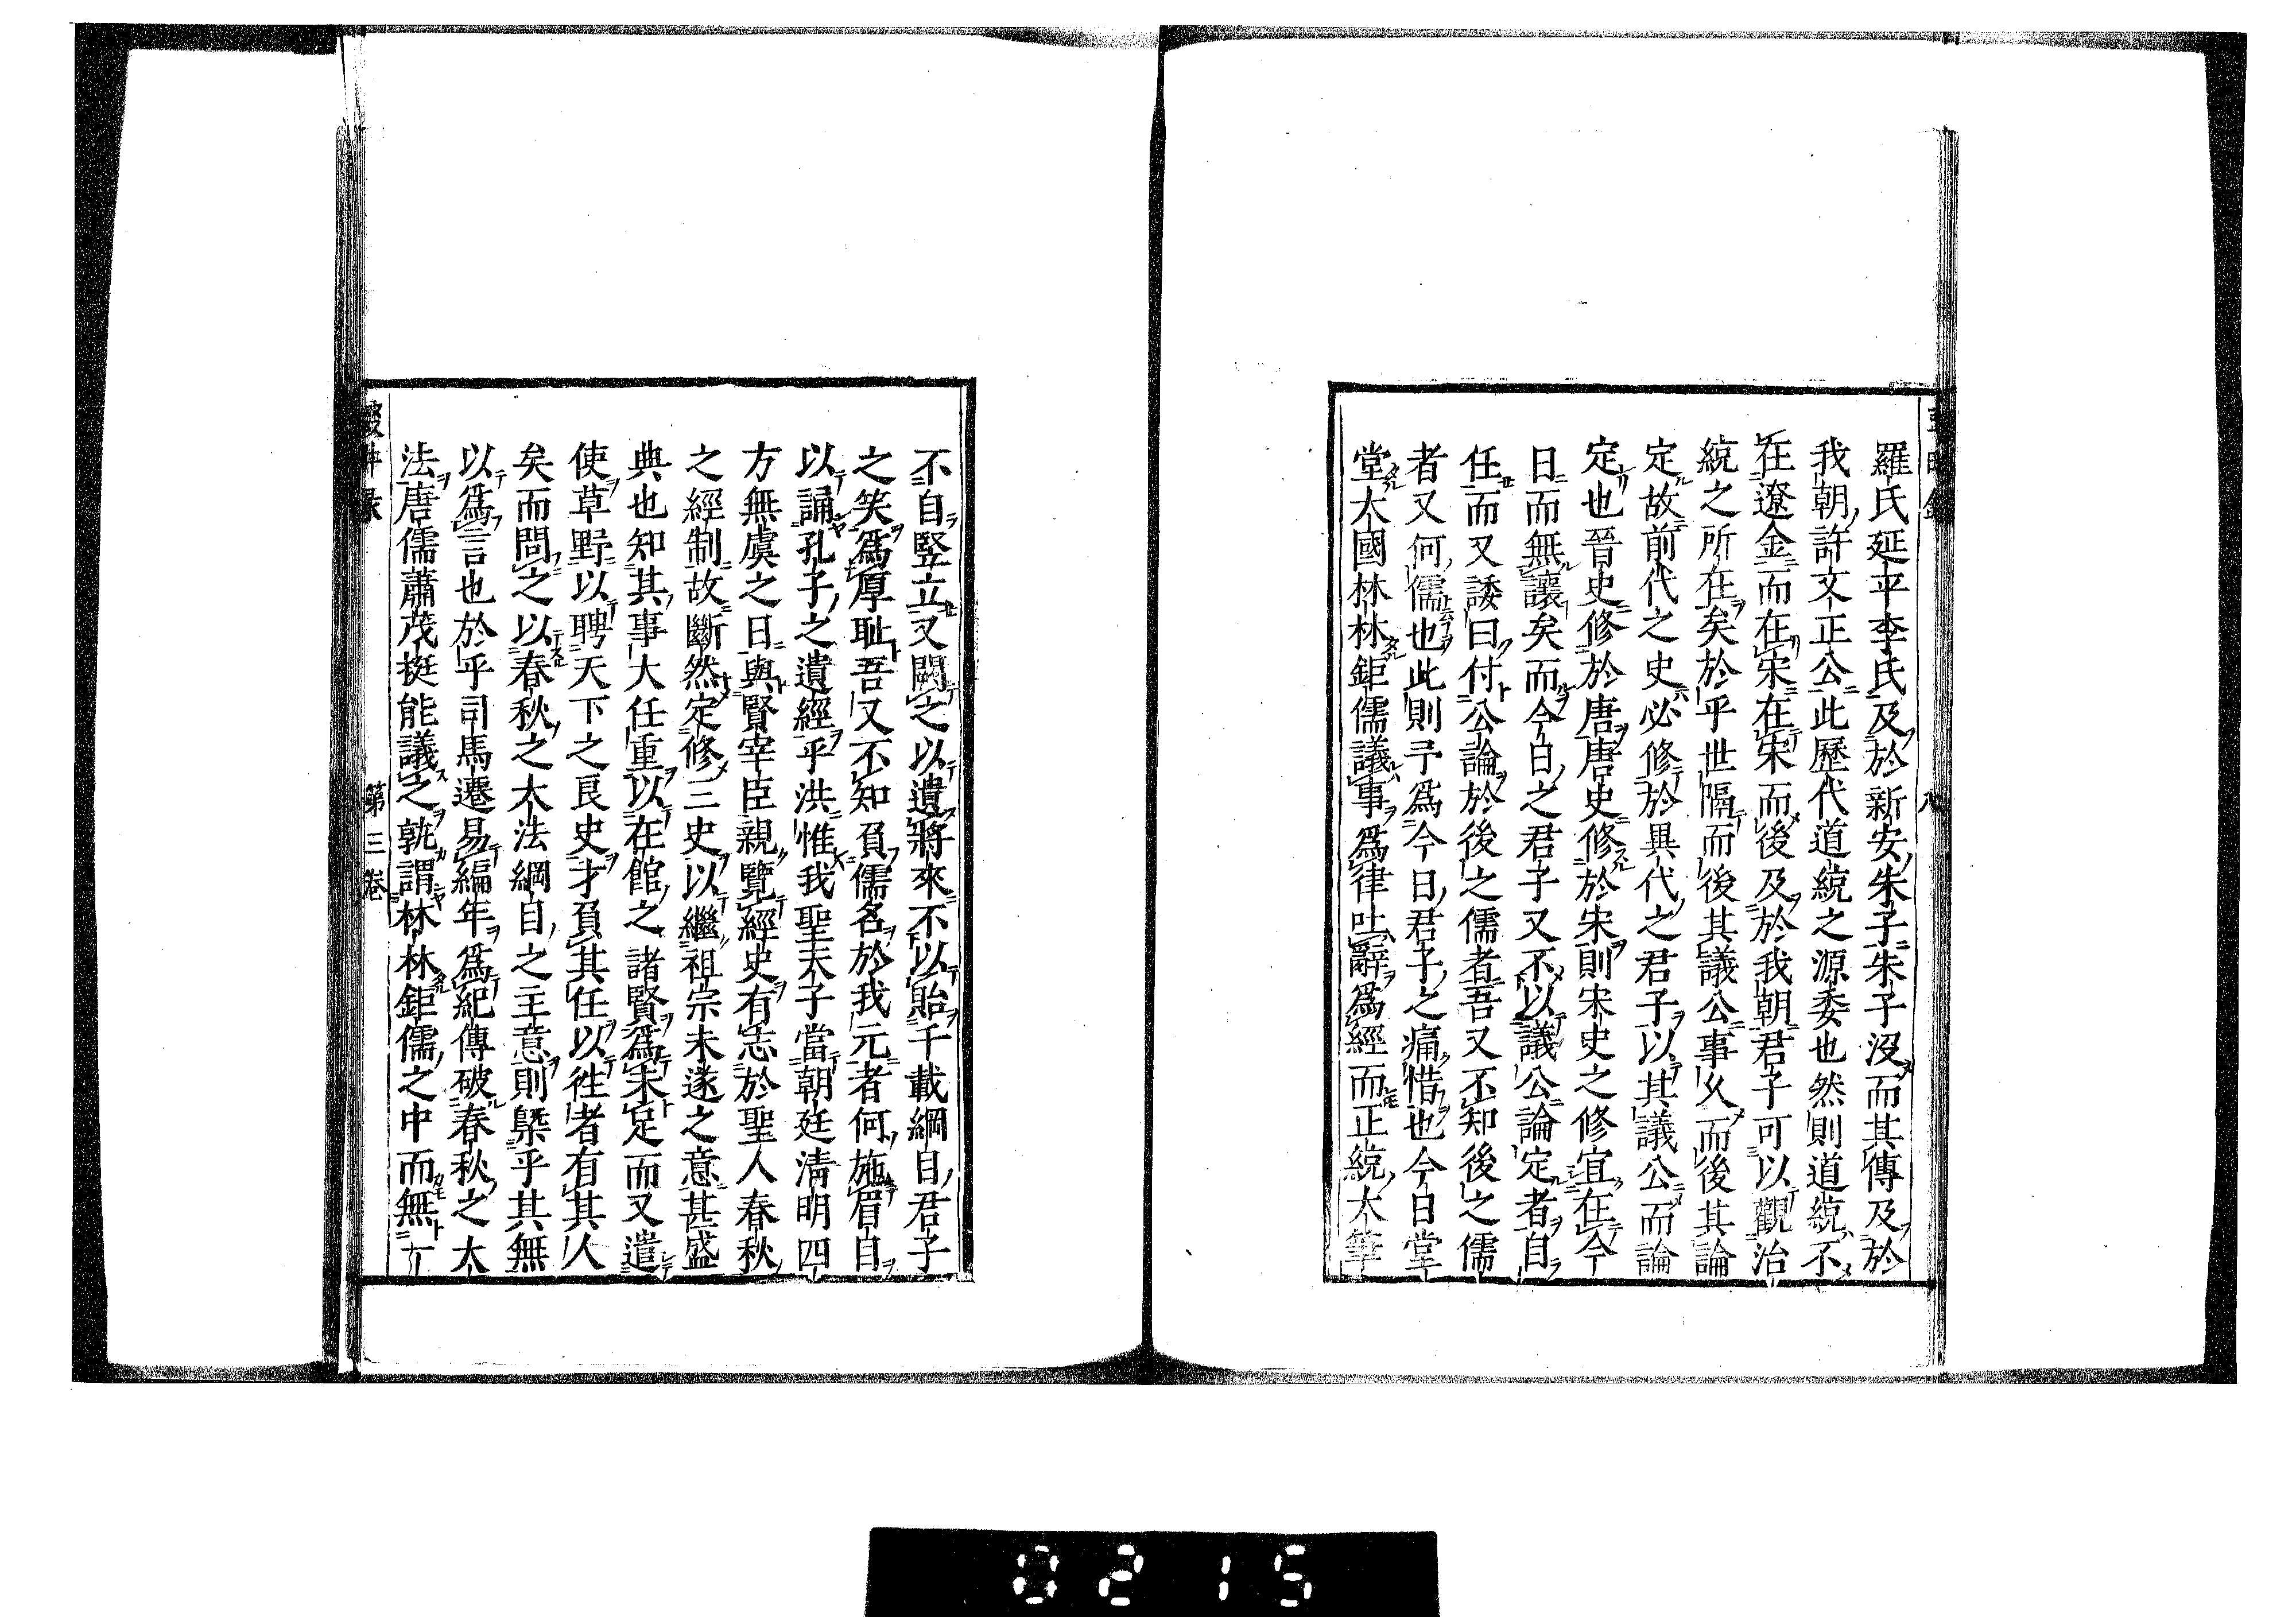 羅氏延平李氏及於新安朱子朱子沒而其傳及於
我朝許文正公此歷代道統之源委也然則道統不
在遼金而在宋在宋而後及於我朝君子可以觀治
統之所在矣於乎世隔而後其議公事久而後其論
定故前代之史必修於異代之君子以其議公而論
定也晉史修於唐唐史修於宋則宋史之修宜在今
日而無讓矣而今日之君子又不以議公論定者自
任而又諉曰付公論於後之儒者吾又不知後之儒
者又何儒也此則予為今日君子之痛惜也今日堂
堂大國林林鉅儒議事為律吐辭為經而正統大筆
不自竪立又闕之以遺將來不以貽千載綱目君子
之笑為厚耻吾又不知負儒名於我元者何施眉目
以誦孔子之遺經乎洪惟我聖天子當朝廷清明四
方無虞之日與賢宰臣親覽經史有志於聖人春秋
之經制故斷然定修三史以繼祖宗未遂之意甚盛
典也知其事大任重以在館之諸賢為未足而又遣
使草野以聘天下之良史才負其任以徃者有其人
矣而問之以春秋之大法綱目之主意則槩乎其無
以為言也於乎司馬遷易編年為紀傳破春秋之大
法唐儒蕭茂挺能議之孰謂林林鉅儒之中而無一
第三卷